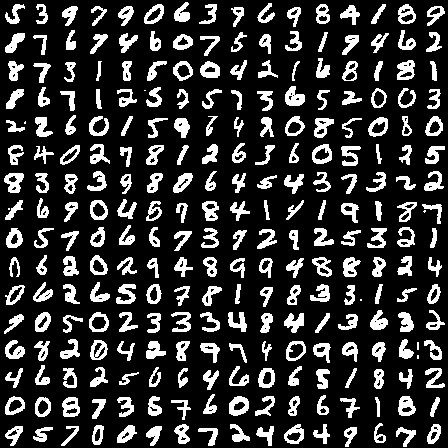 5 3 9 7 9 0 6 3 9 6 9 8 4 1 8 9
8 7 6 9 4 6 0 7 5 9 3 1 9 4 6 2
8 7 3 1 8 8 0 0 4 2 1 6 8 1 8 1
8 6 7 1 2 5 5 7 3 6 5 2 0 0 3
2 2 6 0 1 5 9 4 8 0 8 5 0 8 0
8 4 0 2 7 8 1 2 6 3 6 0 5 1 2 5
8 3 8 3 9 8 0 6 4 5 4 3 7 3 2 2
1 6 9 0 4 6 9 8 4 1 1 1 9 1 8 7
0 5 7 0 6 6 7 3 9 2 9 2 5 3 2 1
0 6 2 0 2 9 4 8 9 9 4 8 8 8 2 4
0 6 2 6 5 0 7 8 1 9 8 3 3 1 5 0
9 0 5 0 2 3 3 3 4 8 4 1 3 6 3 2
6 8 2 0 4 2 8 9 7 4 0 9 9 9 6 3
4 6 0 2 5 0 6 4 6 0 6 5 1 8 4 2
0 0 8 7 3 5 7 6 0 2 8 6 7 1 8 1
9 5 7 0 0 9 8 7 2 4 0 4 9 6 7 0